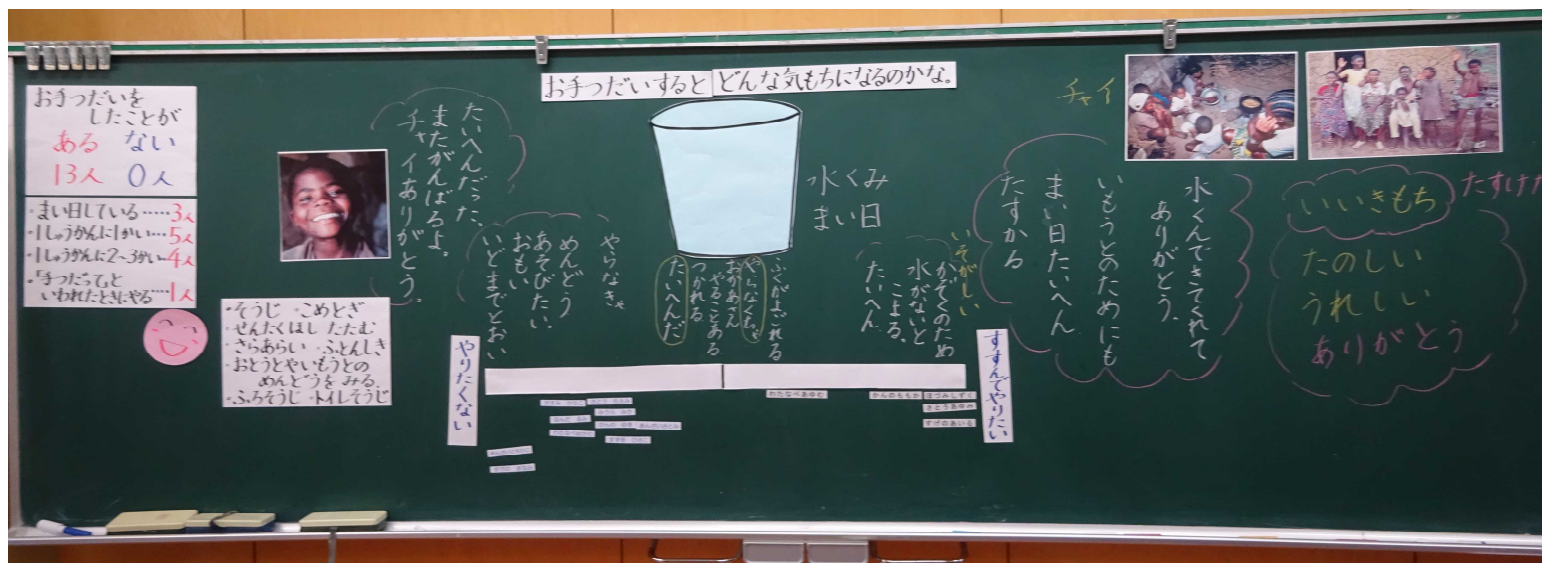 お手つだいすると どんな気もちになるのかな。
お手つだいを
したことが
ある ない
13人 0人
・まい日している……3人
・1しゅうかんに1かい…5人
・1しゅうかんに2~3かい…4人
・「手つだって」と
いわれたときにやる……1人
・そうじ ・こめとぎ
・せんたくほし たたむ
・さらあらい ・ふとんしき
・おとうとやいもうとの
めんどうをみる
・ふろそうじ ・トイレそうじ
たいへんだった、
またがんばるよ。
チャイありがとう。
やらなきゃ
めんどう
あそびたい、
おもい
いどまでとおい
やりたくない
水くみ
まい日
ふくがよごれる
やらなくちゃ
おかあさん
やることある
つかれる
たいへんだ
いそがしい
かぞくのため
水がないと
こまる。
たいへん
すすんでやりたい
わたなべあゆむ
かんのももか
ほづみしずく
さとうあゆみ
すげのあいる
チャイ
水くんできてくれて
ありがとう。
いもうとのためにも
まい日たいへん
たすかる
たすけた
いいきもち
たのしい
うれしい
ありがとう